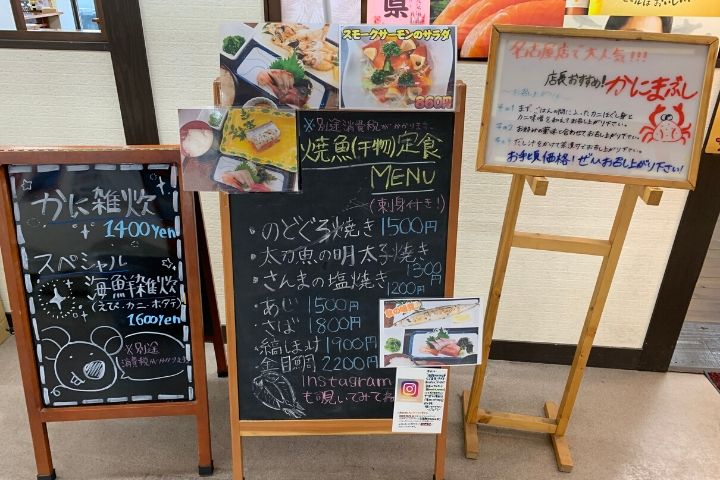 かに雑炊
1400yen
スペシャル
海鮮雑炊
(えび・カニ・ホタテ)
1600yen
※別途
消費税がかかります
スモークサーモンのサラダ
860円
※別途消費税がかかります。
焼魚(干物)定食
MENU
(刺身付き!)
・のどぐろ焼き 1500円
・太刀魚の明太子焼き
1300円
・さんまの塩焼き
1200円
・あじ 1500円
・さば 1800円
・縞ほっけ 1900円
・金目鯛 2200円
Instagram
も覗いてみて
県
名古屋店で大人気!!!
店長おすすめ! かにまぶし
お手頃価格! ぜひお召し上がり下さい!